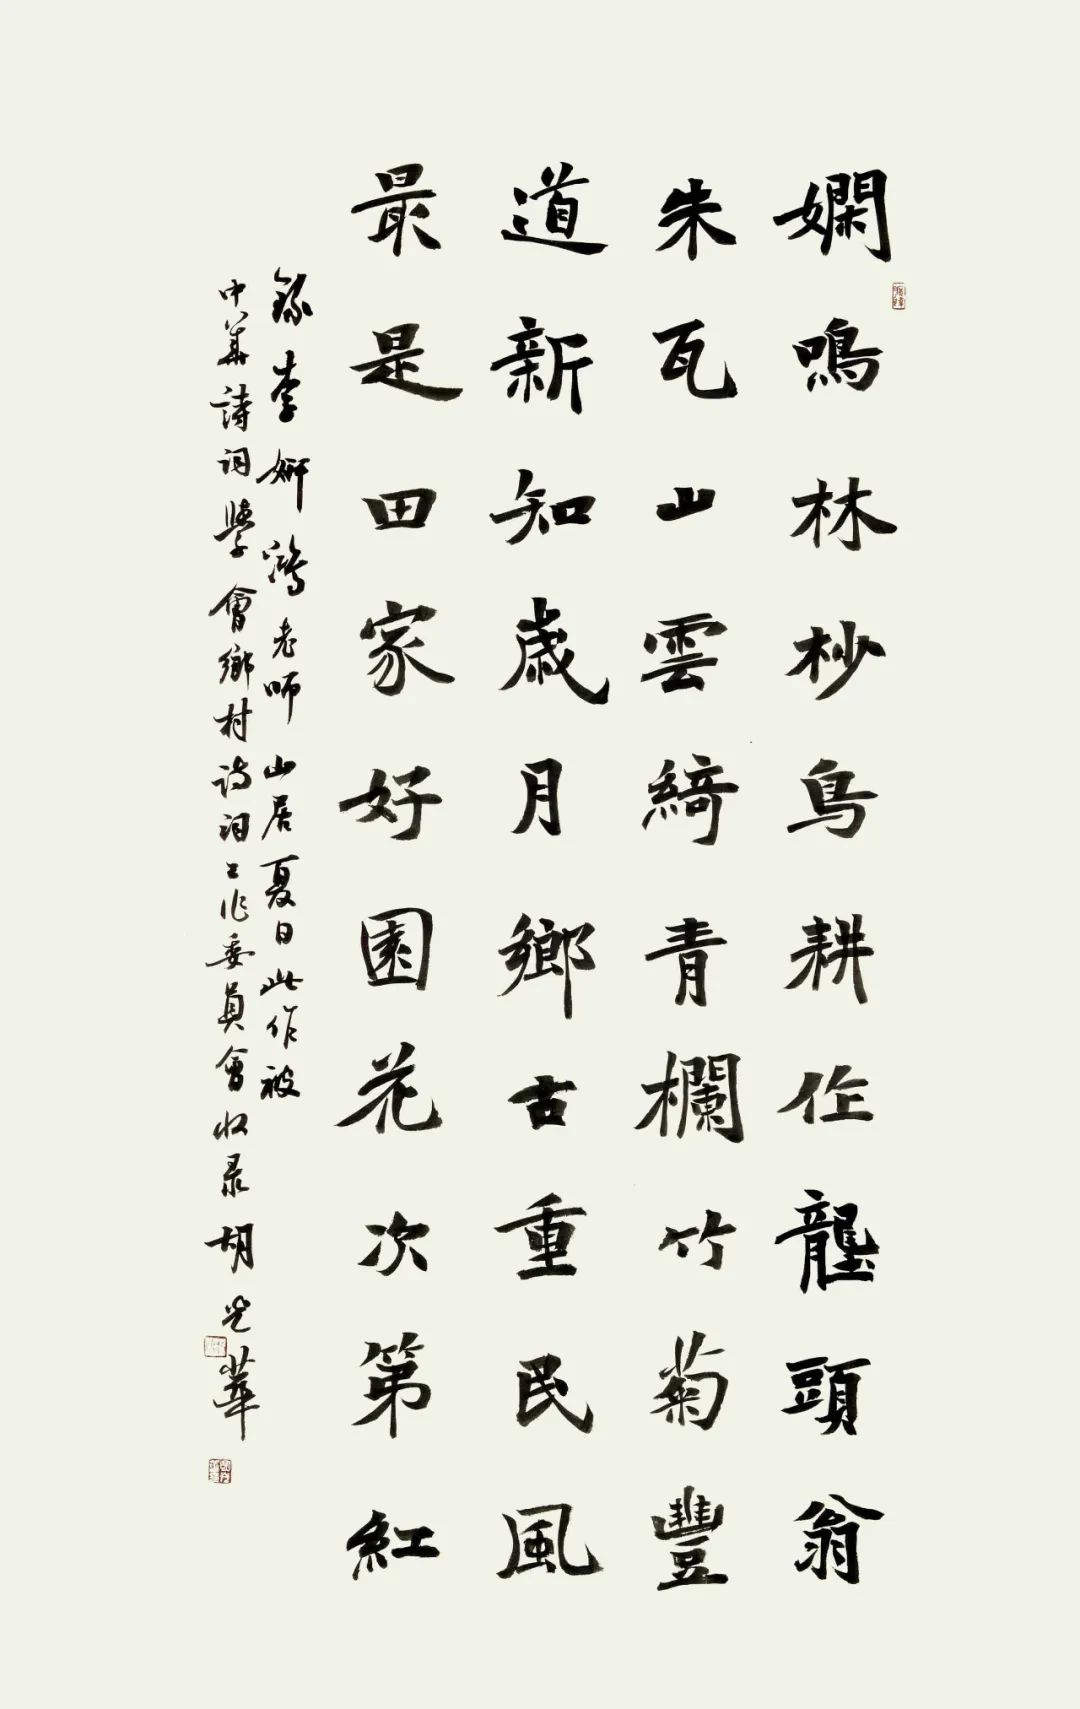 嫻鳴林杪鳥耕作壟頭翁
朱瓦山雲綺青欄竹菊豐
道新知歲月鄉古重民風
最是田家好園花次第紅
錄李妍鴻老师山居夏日此作被
中華詩詞學會鄉村诗词工作委員會收录胡光華